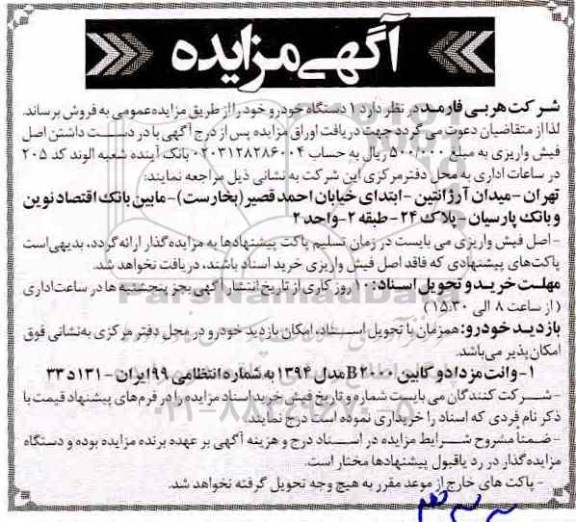 آگهی مزایده
شرکت هربی فارمد در نظر دارد ۱ دستگاه خودرو خود را از طریق مزایده عمومی به فروش برساند.
لذا از متقاضیان دعوت می گردد جهت دریافت اوراق مزایده پس از درج آگهی با در دست داشتن اصل
فیش واریزی به مبلغ ۵۰۰/۰۰۰ ریال به حساب ۰۲۰۳۱۲۸۲۸۶۰۰۴ بانک آینده شعبه الوند کد ۲۰۵
در ساعات اداری به محل دفتر مرکزی این شرکت به نشانی ذیل مراجعه نمایند:
تهران - میدان آرژانتین - ابتدای خیابان احمد قصیر (بخارست) - مابین بانک اقتصاد نوین
و بانک پارسیان - پلاک ۲۴ - طبقه ۲ - واحد ۲
- اصل فیش واریزی می بایست در زمان تسلیم پاکت پیشنهادها به مزایده گذار ارائه گردد، بدیهی است
پاکت های پیشنهادی که فاقد اصل فیش واریزی خرید اسناد باشند، دریافت نخواهد شد.
مهلت خرید و تحویل اسناد: ۱۰ روز کاری از تاریخ انتشار آگهی بجز پنجشنبه ها در ساعت اداری
(از ساعت ۸ الی ۱۵:۳۰)
بازدید خودرو: همزمان با تحویل اسناد، امکان بازدید خودرو در محل دفتر مرکزی به نشانی فوق
امکان پذیر می باشد.
۱- وانت مزدا دو کابین B۲۰۰۰ مدل ۱۳۹۴ به شماره انتظامی ۹۹ ایران - ۱۳۱ د ۳۳
- شرکت کنندگان می بایست شماره و تاریخ فیش خرید اسناد مزایده را در فرم های پیشنهاد قیمت با
ذکر نام فردی که اسناد را خریداری نموده است درج نمایند.
- ضمناً مشروح شرایط مزایده در اسناد درج و هزینه آگهی بر عهده برنده مزایده بوده و دستگاه
مزایده گذار در رد یا قبول پیشنهادها مختار است.
- پاکت های خارج از موعد مقرر به هیچ وجه تحویل گرفته نخواهد شد.
ParsNamadData
۰۲۱-۸۸۳۴۹۶۷۰-۵